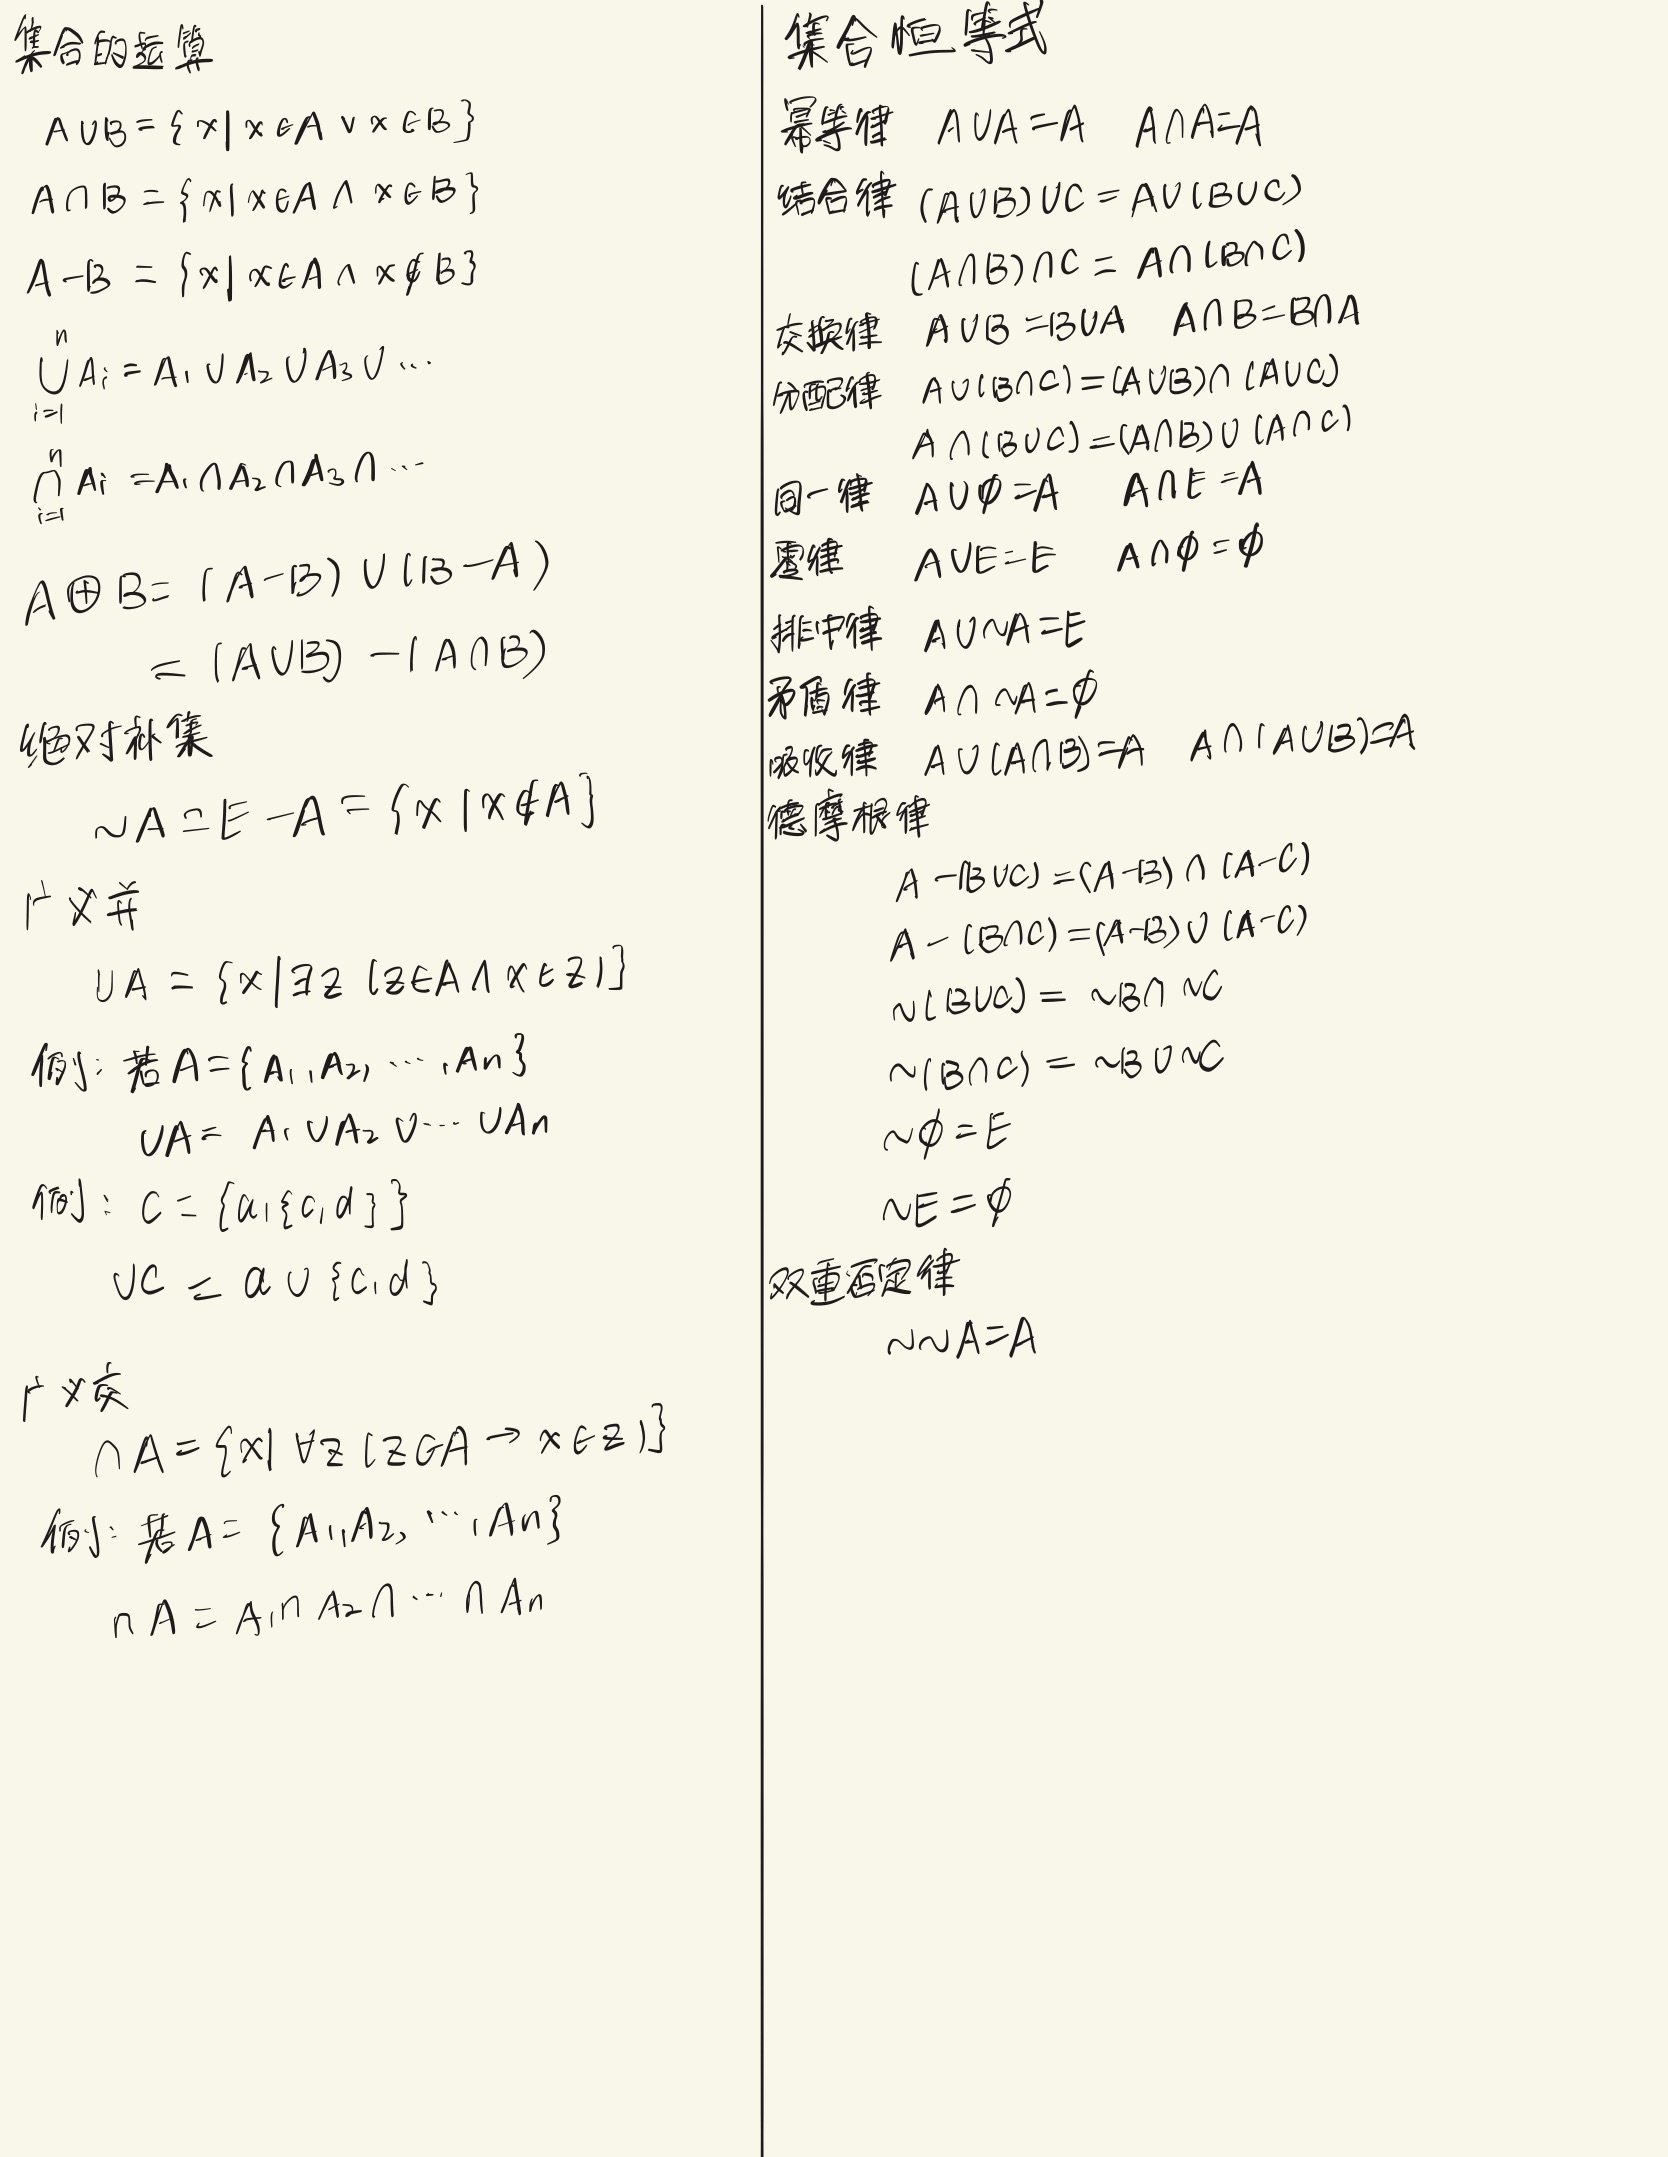 集合的运算
A∪B={x|x∈A∨x∈B}
A∩B={x|x∈A∧x∈B}
A-B={x|x∈A∧x∉B}
n
∪Ai=A₁∪A₂∪A₃∪…
i=1
n
∩Ai=A₁∩A₂∩A₃∩…
i=1
A⊕B=(A-B)∪(B-A)
=(A∪B)-(A∩B)
绝对补集
~A=E-A={x|x∉A}
广义并
∪A={x|∃z(z∈A∧x∈z)}
例:若A={A₁,A₂,…,An}
∪A=A₁∪A₂∪…∪An
例:C={a,{c,d}}
∪C=a∪{c,d}
广义交
∩A={x|∀z(z∈A→x∈z)}
例:若A={A₁,A₂,…,An}
∩A=A₁∩A₂∩…∩An
集合恒等式
幂等律 A∪A=A A∩A=A
结合律 (A∪B)∪C=A∪(B∪C)
(A∩B)∩C=A∩(B∩C)
交换律 A∪B=B∪A A∩B=B∩A
分配律 A∪(B∩C)=(A∪B)∩(A∪C)
A∩(B∪C)=(A∩B)∪(A∩C)
同一律 A∪φ=A A∩E=A
零律 A∪E=E A∩φ=φ
排中律 A∪~A=E
矛盾律 A∩~A=φ
吸收律 A∪(A∩B)=A A∩(A∪B)=A
德摩根律
A-(B∪C)=(A-B)∩(A-C)
A-(B∩C)=(A-B)∪(A-C)
~(B∪C)=~B∩~C
~(B∩C)=~B∪~C
~φ=E
~E=φ
双重否定律
~~A=A